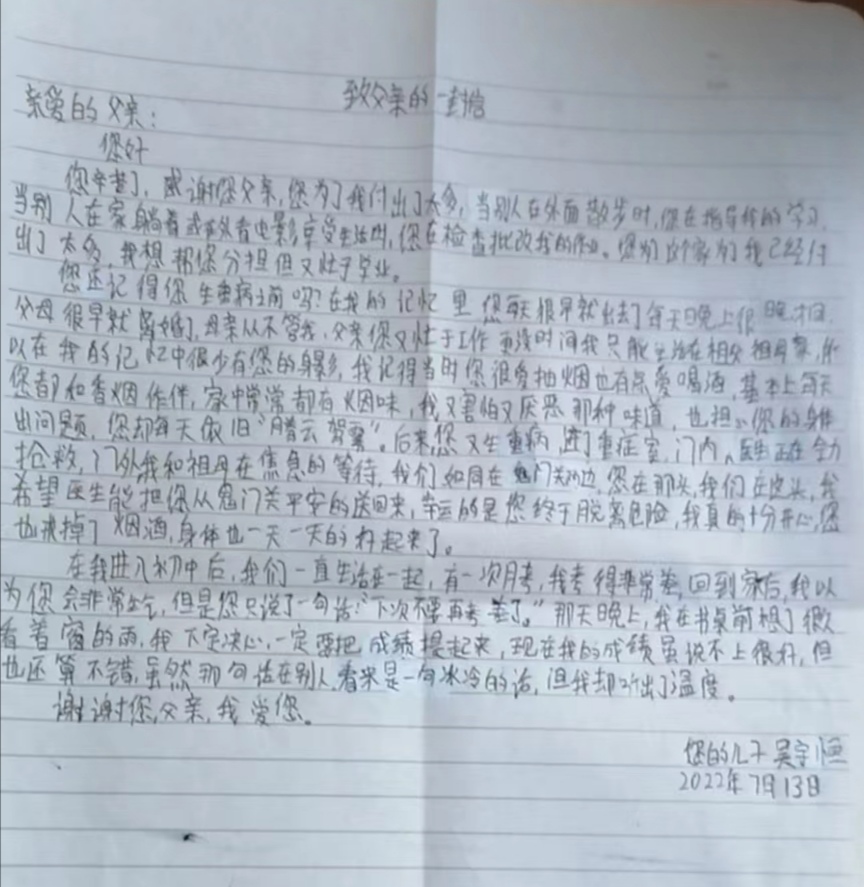 致父亲的一封信
亲爱的父亲：
您好
您辛苦了，感谢您父亲，您为了我付出了太多，当别人在外面散步时，您在指导我的学习，
当别人在家躺着或者看电影享受生活时，您在检查批改我的作业。您为这个家为我已经付
出了太多，我想帮您分担但又忙于学业。
您还记得您生重病之前吗？在我的记忆里您每天很早就出去了每天晚上很晚才回，
父母很早就离婚了，母亲从不管我，父亲您又忙于工作更多时间我只能生活在祖父祖母家，所
以在我的记忆中很少有您的身影，我记得当时您很爱抽烟也有点爱喝酒，基本上每天
您都和香烟作伴，家中常常都有烟味，我又害怕又厌恶那种味道，也担心您的身体
出问题，您却每天依旧“腾云驾雾”。后来您又生重病，进了重症室，门内，医生正在全力
抢救，门外我和祖母在焦急的等待，我们如同在鬼门关两边，您在那头，我们在这头，我
希望医生能把您从鬼门关平安的送回来，幸运的是您终于脱离危险，我真的十分开心，您
也戒掉了烟酒，身体也一天一天的好起来了。
在我进入初中后，我们一直生活在一起，有一次月考，我考得非常差，回到家后，我以
为您会非常生气，但是您只说了一句话：“下次不要再考差了。”那天晚上，我在书桌前想了很久
看着窗的雨，我下定决心，一定要把成绩提起来，现在我的成绩虽说不上很好，但
也还算不错，虽然那句话在别人看来是一句冰冷的话，但我却听出了温度。
谢谢您，父亲，我爱您。
您的儿子吴宇恒
2022年7月13日